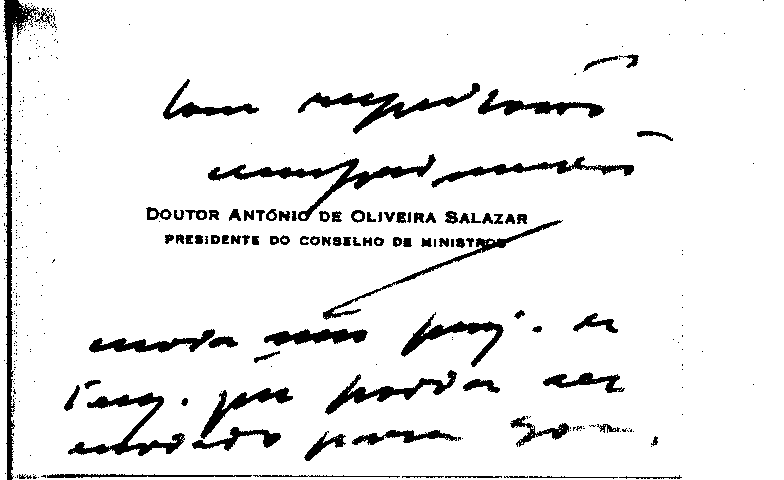 Com respeitosos
cumprimentos
DOUTOR ANTÓNIO DE OLIVEIRA SALAZAR
PRESIDENTE DO CONSELHO DE MINISTROS
envia um proj. de
que poderá ser
enviado para